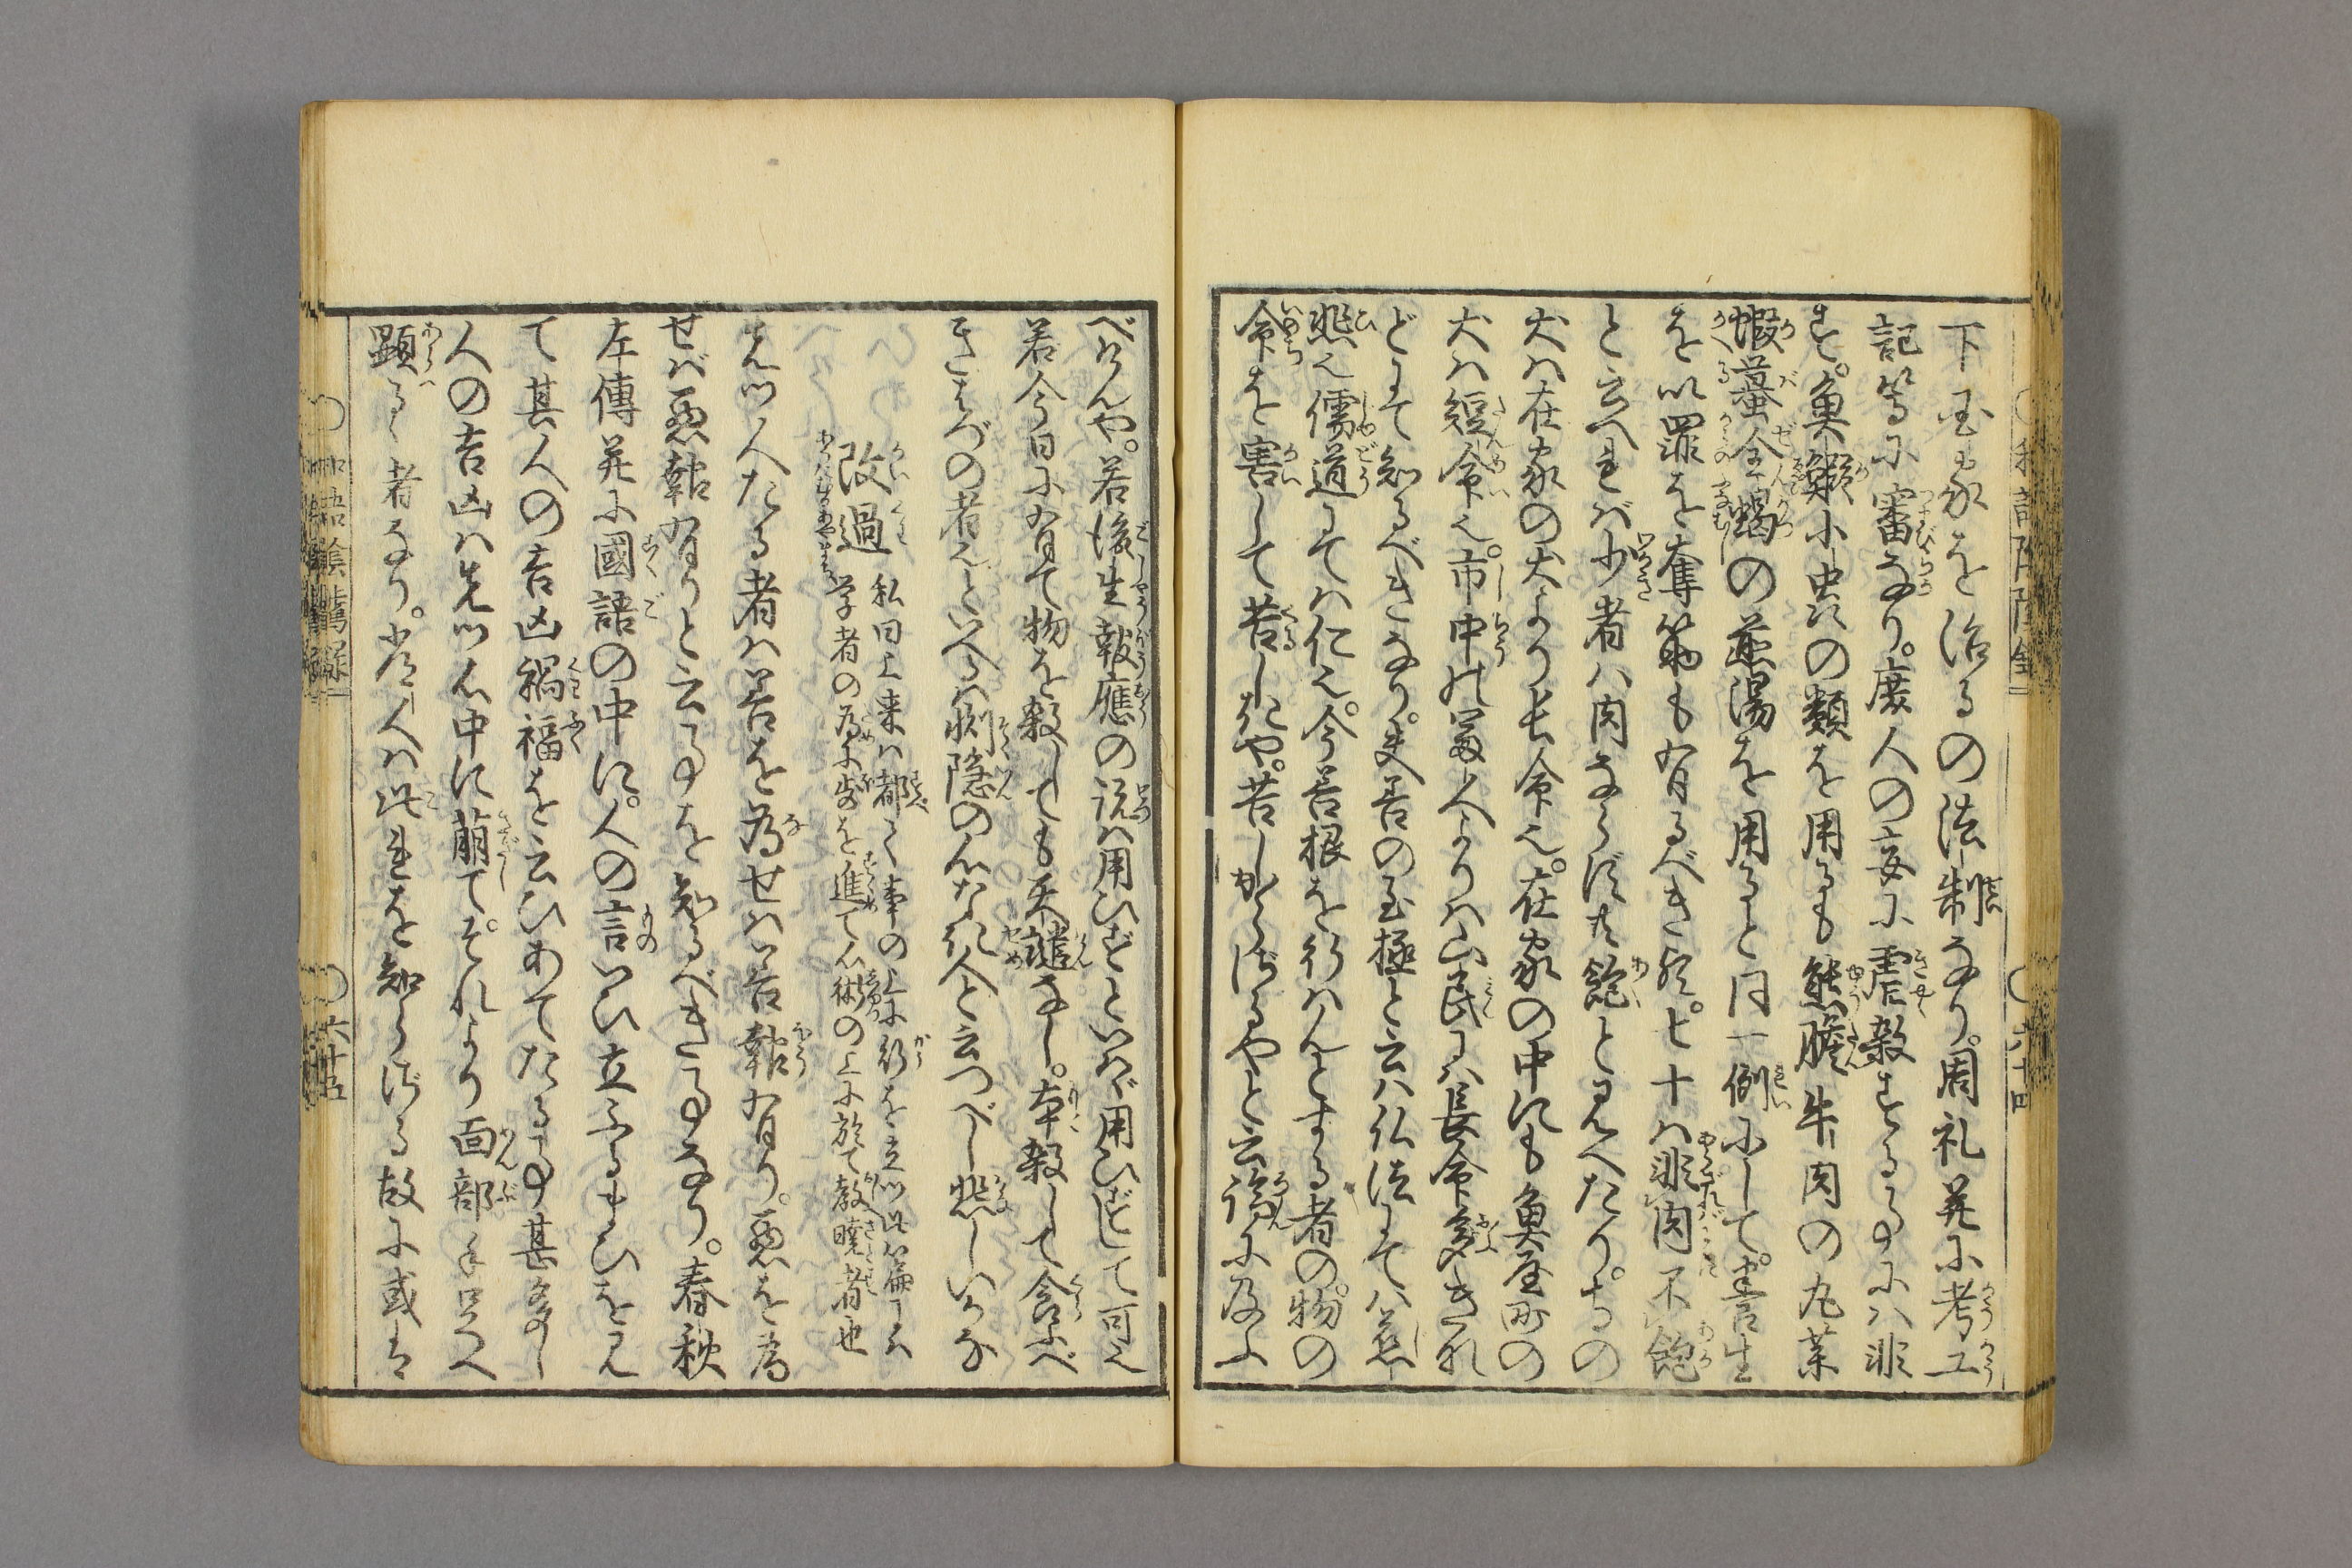 下国家を治るの法制なり。周礼并に考工
記等に審なり。庶人の妄に虐殺することには非
ず。魚類小虫の類を用るも熊膽牛肉の丸薬
蝦蟇全蝎の煎湯を用ると同一例にして。害生
を以罪を奪筋も有るべきか。七十ハ非肉不飽
と云へれば少者ハ肉ならば共飽とみへたり。
犬ハ在家の犬より長命也。在家の中にも魚屋町の
犬ハ短命也。市中の富人よりハ山民ハ長命多きれ
どにて知るべきなり。夫善の至極と云ハ仏法にてハ慈
悲也儒道にてハ仁也。今善根を行ハんとする者の。物の
命を害して苦しきや。苦しからざるやと云論に及ふ
べけんや。若後生報應の説ハ用ひずといハヾ用ひずして可也
若今日に有て物を殺しても天譴なし。本殺して食ふべ
きはづの者也といへるハ惻隠の心なき人と云つべし悲しいかな
改過
私曰上来ハ都て事の上に行を立つ此篇よりハ
学者の為に歩を進て心術の上に於て教曉者也
先ツ人たる者ハ善を為せハ善報有り。悪を為
せバ悪報有りと云ことを知るべきことなり。春秋
左傳并に國語の中に。人の言いひ立ふるまひをみ
て其人の吉凶禍福を云ひあてたる事甚多し
人の吉凶ハ先ツ心中に萠て。それより面部手足へ
顕るゝ者なり。常人ハ此れを知らざる故に或は
六十四
六十五